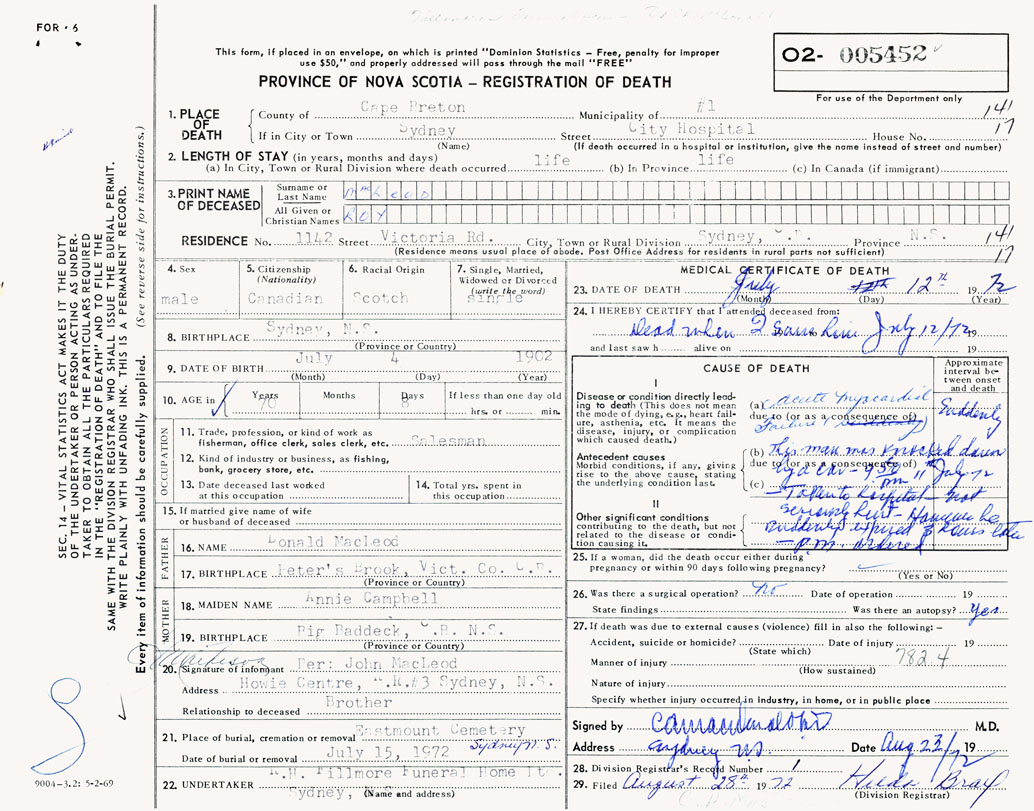 FOR
02- 005452
This form, if placed in an envelope, on which is printed "Dominion Statistics – Free, penalty for improper
use $50," and properly addressed will pass through the mail "FREE"
PROVINCE OF NOVA SCOTIA – REGISTRATION OF DEATH
For use of the Department only
1. PLACE OF DEATH
County of Cape Breton Municipality of #1 141
If in City or Town Sydney Street City Hospital House No. 17
(Name) (If death occurred in a hospital or institution, give the name instead of street and number)
2. LENGTH OF STAY (in years, months and days)
(a) In City, Town or Rural Division where death occurred life (b) In Province life (c) In Canada (if immigrant)
3. PRINT NAME OF DECEASED
Surname or Last Name MacLeod
All Given or Christian Names ROY
RESIDENCE No. 1142 Street Victoria Rd. City, Town or Rural Division Sydney, C.B. Province N.S. 141
(Residence means usual place of abode. Post Office Address for residents in rural parts not sufficient) 17
4. Sex male
5. Citizenship (Nationality) Canadian
6. Racial Origin Scotch
7. Single, Married, Widowed or Divorced (write the word) single
8. BIRTHPLACE Sydney, N.S.
(Province or Country)
9. DATE OF BIRTH July 4 1902
(Month) (Day) (Year)
10. AGE in Years 70 Months Days 8 If less than one day old
hrs. or min.
OCCUPATION
11. Trade, profession, or kind of work as
fisherman, office clerk, sales clerk, etc. Salesman
12. Kind of industry or business, as fishing,
bank, grocery store, etc.
13. Date deceased last worked
at this occupation
14. Total yrs. spent in
this occupation
15. If married give name of wife
or husband of deceased
FATHER
16. NAME Ronald MacLeod
17. BIRTHPLACE Peter's Brook, Vict. Co. C.B.
(Province or Country)
MOTHER
18. MAIDEN NAME Annie Campbell
19. BIRTHPLACE Big Baddeck, C.B. N.S.
(Province or Country)
20. Signature of informant Per: John MacLeod
Address Howie Centre, R.R.#3 Sydney, N.S.
Relationship to deceased Brother
21. Place of burial, cremation or removal Eastmount Cemetery
Sydney N.S.
Date of burial or removal July 15, 1972
22. UNDERTAKER Fillmore Funeral Home Ltd.
Sydney, (Name and address)
MEDICAL CERTIFICATE OF DEATH
23. DATE OF DEATH July 12th 12th 1972
(Month) (Day) (Year)
24. I HEREBY CERTIFY that I attended deceased from:
Dead when I saw him July 12/72 19
and last saw h alive on 19
CAUSE OF DEATH
Approximate interval between onset and death
I
Disease or condition directly leading to death (This does not mean the mode of dying, e.g., heart failure, asthenia, etc. It means the disease, injury, or complication which caused death.)
(a) acute myocardial Suddenly
due to (or as a consequence of)
Failure
Antecedent causes
Morbid conditions, if any, giving rise to the above cause, stating the underlying condition last.
(b) This man was knocked down
due to (or as a consequence of)
by a car - 9:50 pm 11th July 72
(c) - Taken to hospital - not
II
Other significant conditions contributing to the death, but not related to the disease or condition causing it.
seriously hurt - However he
suddenly expired 3 hours later
- P.M. ordered
25. If a woman, did the death occur either during
pregnancy or within 90 days following pregnancy?
(Yes or No)
26. Was there a surgical operation? no Date of operation 19
State findings Was there an autopsy? Yes
27. If death was due to external causes (violence) fill in also the following: –
Accident, suicide or homicide? Date of injury 19
(State which)
Manner of injury 782.4
(How sustained)
Nature of injury
Specify whether injury occurred in industry, in home, or in public place
Signed by M.D.
Address Sydney N.S. Date Aug 23/72 19
28. Division Registrar's Record Number
29. Filed August 28th 1972 Bray
(Division Registrar)
SEC. 14 – VITAL STATISTICS ACT MAKES IT THE DUTY
OF THE UNDERTAKER OR PERSON ACTING AS UNDER-
TAKER TO OBTAIN ALL THE PARTICULARS REQUIRED
IN THE "REGISTRATION OF DEATH" AND TO FILE THE
SAME WITH THE DIVISION REGISTRAR WHO SHALL ISSUE THE BURIAL PERMIT.
WRITE PLAINLY WITH UNFADING INK. THIS IS A PERMANENT RECORD.
Every item of information should be carefully supplied. (See reverse side for instructions.)
9004-3.2: 5-2-69